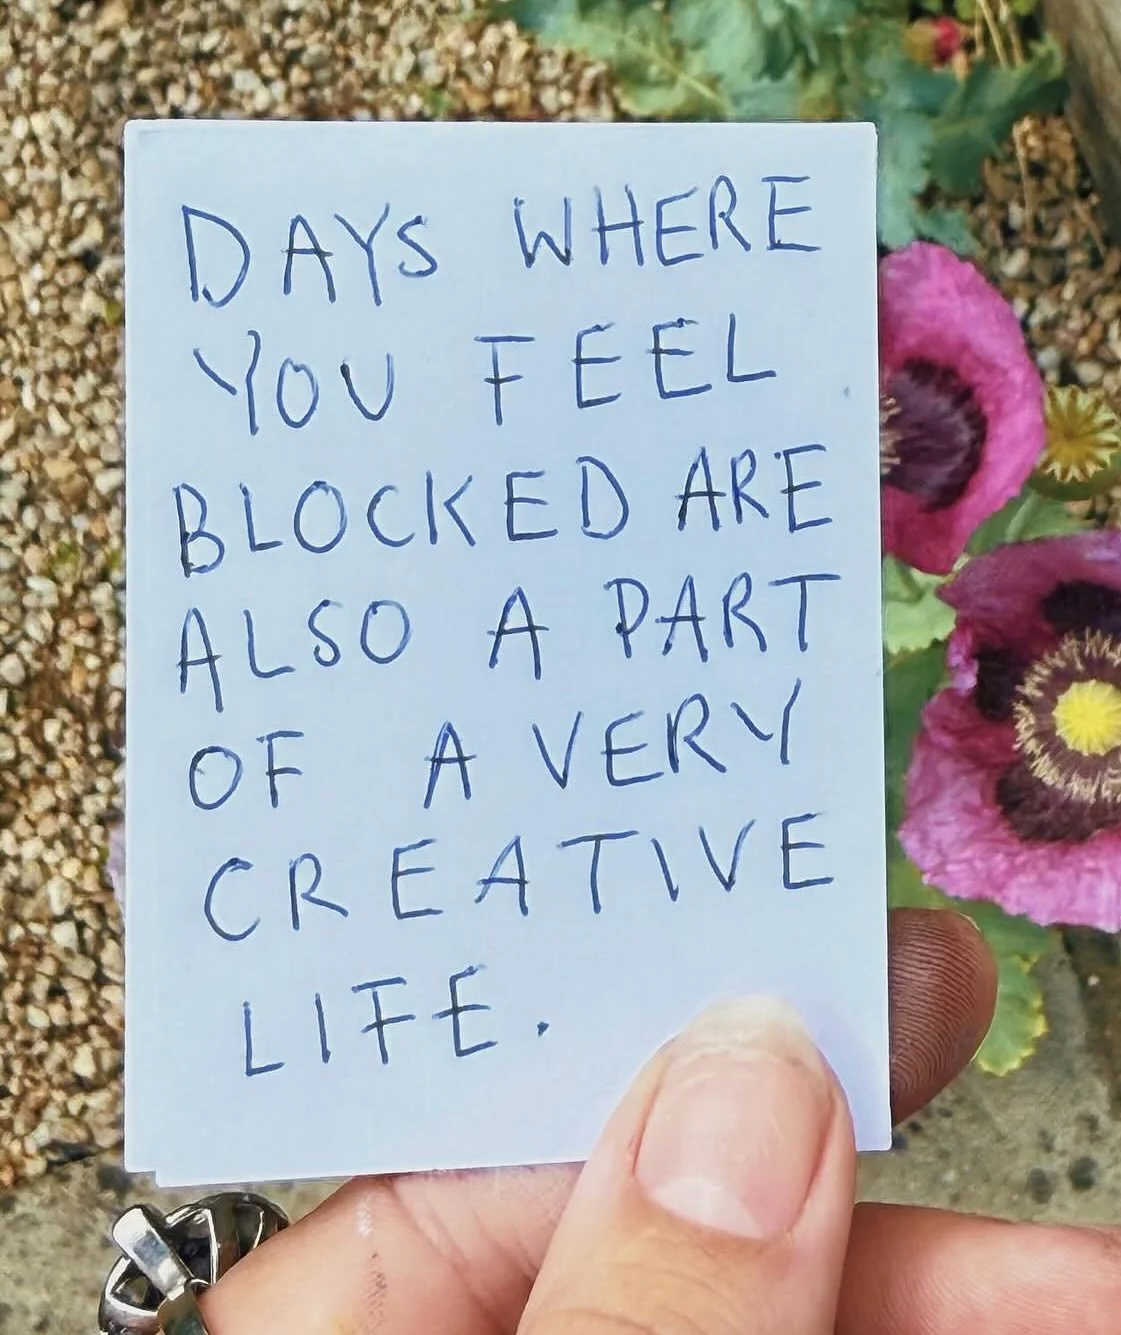 DAYS WHERE
YOU FEEL
BLOCKED ARE
ALSO A PART
OF A VERY
CREATIVE
LIFE.